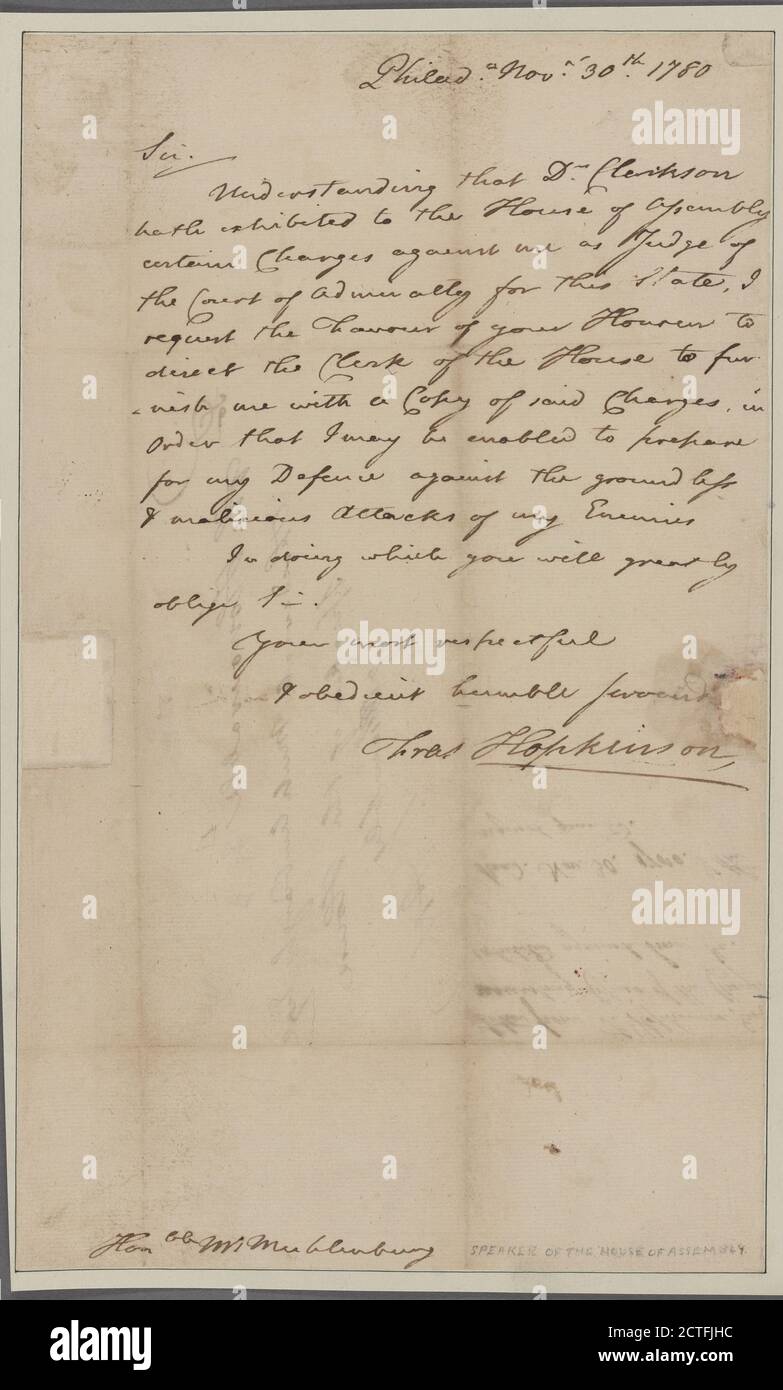 Philad.a Nov.r 30th. 1780
Sir,
Understanding that Dr. Clarkson
hath exhibited to the House of Assembly
certain Charges against me as Judge of
the Court of Admiralty for this State, I
request the Favour of your Honour to
direct the Clerk of the House to fur-
-nish me with a Copy of said Charges, in
Order that I may be enabled to prepare
for my Defence against the groundless
& malicious Attacks of my Enemies
In doing which you will greatly
oblige Sir.
Your most respectful
& obedient humble servant
Fras Hopkinson
Honble Mr Muhlenburg
SPEAKER OF THE HOUSE OF ASSEMBLY.
alamy
alamy
a
a
a
a
alamy
Image ID: 2CTFJHC
www.alamy.com